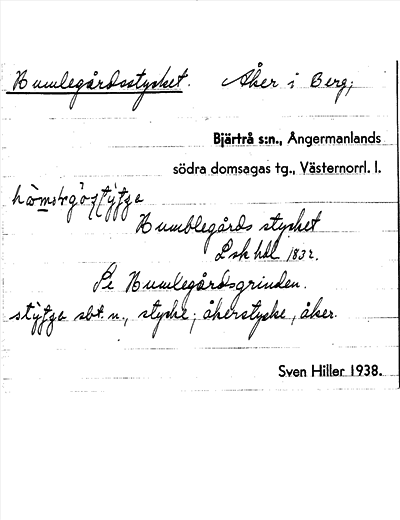 Humlegårdsstycket. Åker i Berg;
Bjärtrå s:n., Ångermanlands
södra domsagas tg., Västernorrl. l.
Humblegårds stycket
Lsk hdl 1832.
Se Humlegårdsgrinden.
sbt. n., stycke; åkerstycke, åker.
Sven Hiller 1938.